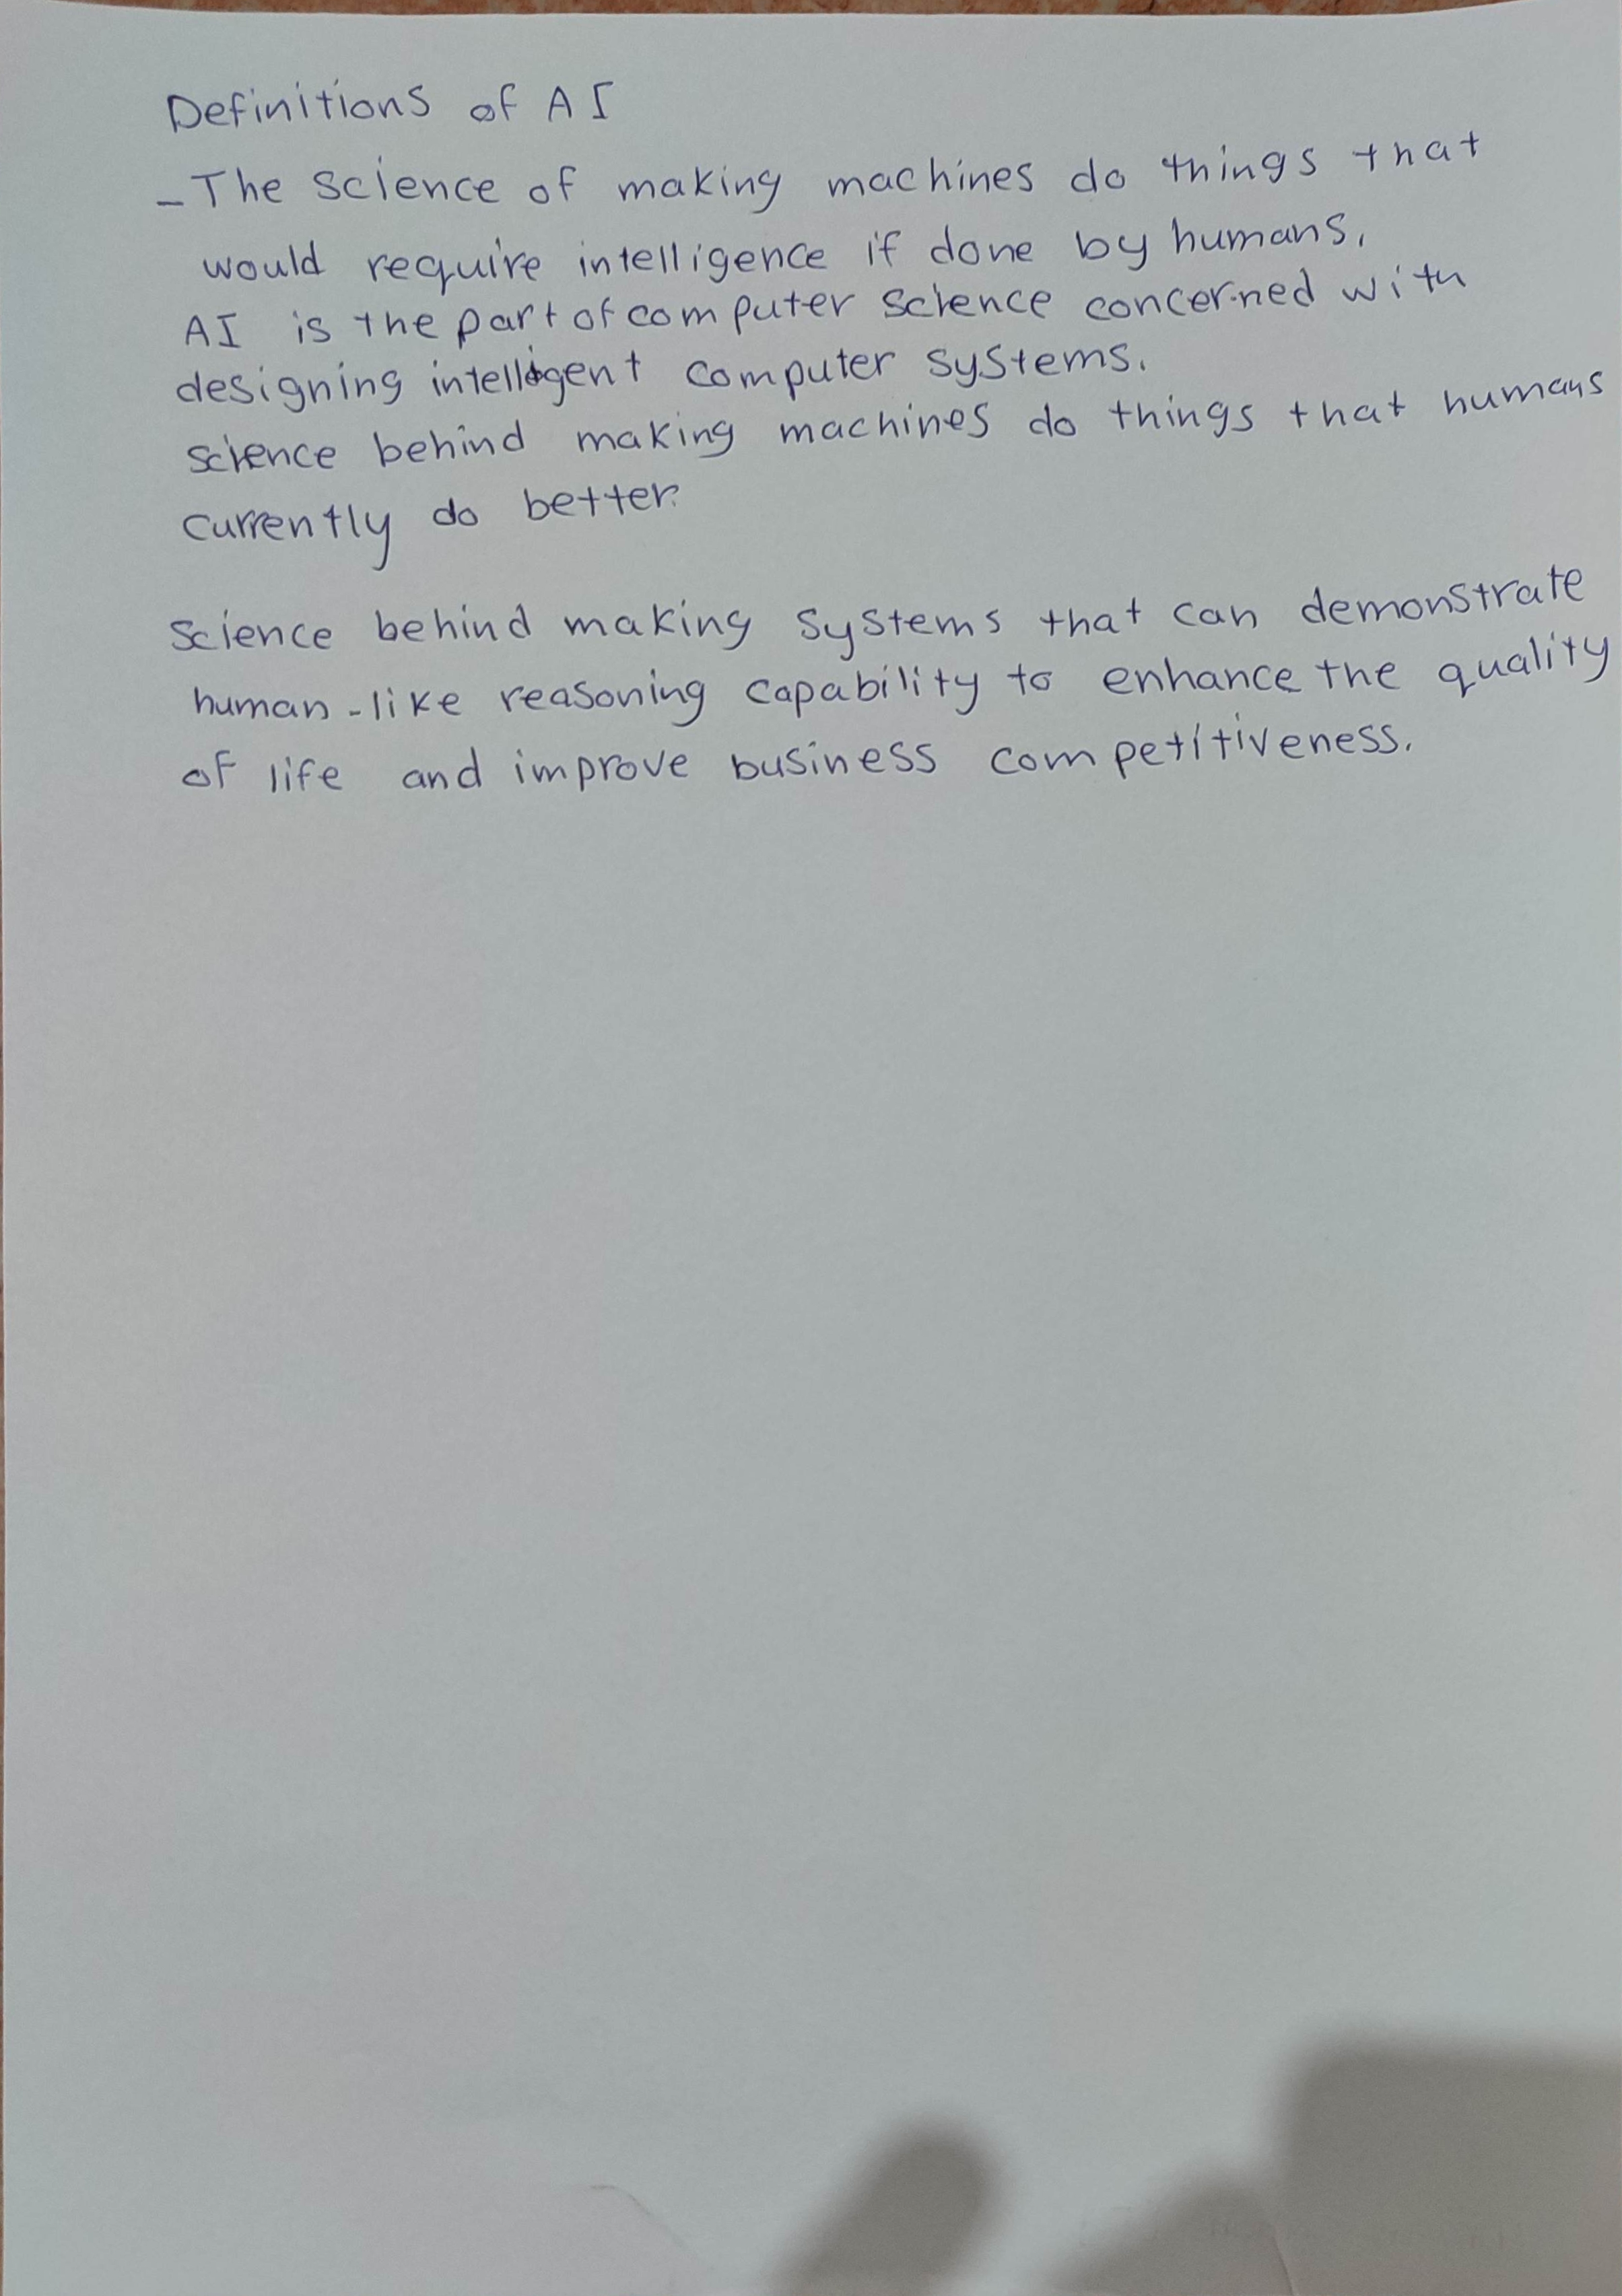 Definitions of AI
- The science of making machines do things that
would require intelligence if done by humans,
AI is the part of computer science concerned with
designing intelligent computer systems.
science behind making machines do things that humans
currently do better.
Science behind making systems that can demonstrate
human-like reasoning capability to enhance the quality
of life and improve business competitiveness.